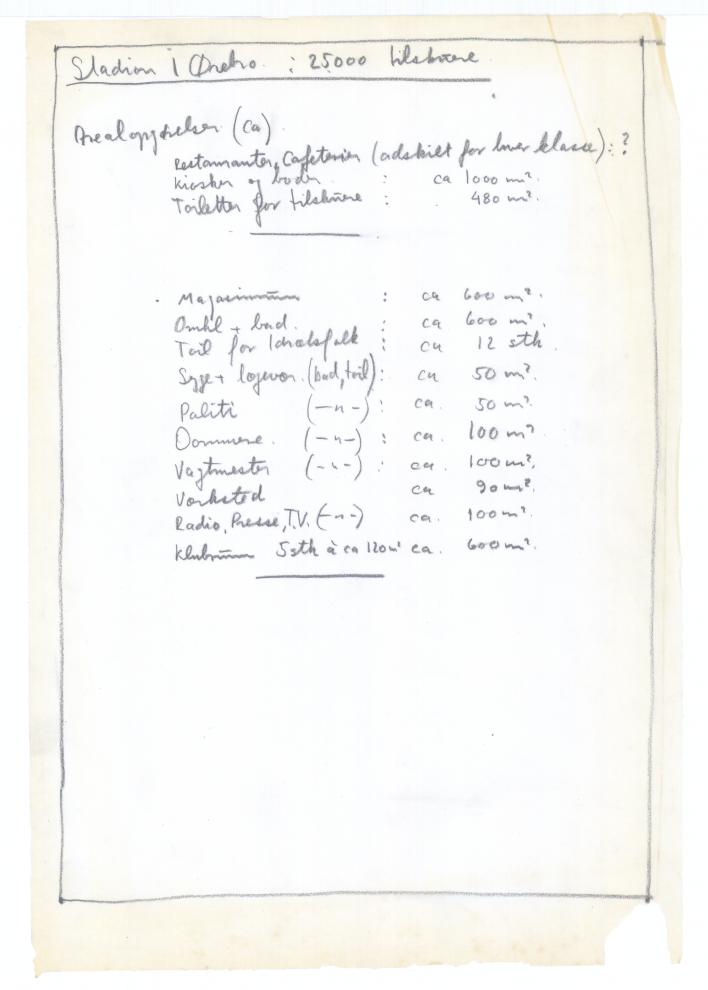 Stadion i Ørebro : 25000 tilskuere
Arealopgivelser (ca)
Restauranter, Cafeterier (adskilt for hver klasse) : ?
Kiosker og boder : ca 1000 m².
Toiletter for tilskuere : 480 m².
Magasinrum : ca 600 m².
Omkl + bad. : ca 600 m².
Toil for Idrætsfolk : ca 12 stk
Syge + lægevær. (bad, toil) : ca 50 m².
Politi (—"—) : ca. 50 m².
Dommere. (—"—) : ca. 100 m²
Vagtmester (—"—) : ca. 100 m².
Værksted ca 90 m².
Radio, Presse, T.V. (—"—) ca. 100 m².
Klubrum 5 stk à ca 120 m² ca. 600 m².